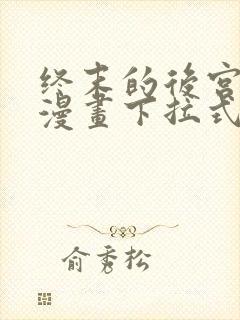 终末的後宮
漫畫下拉式
俞秀松